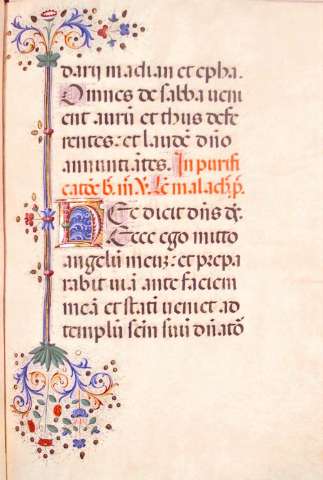 darii madian et epha.
Omnes de sabba ueni
ent aurū et thus defe
rentes: et laudē dn̄o
annunti ātes. In purifi
catōe b. m̄. V. Lc̄. malach. p̄.
Hec dicit dn̄s dē.
Ecce ego mitto
angelū meuz: et prepa
rabit uiā ante faciem
meā et statī ueniet ad
templū sc̄m suū dn̄atō